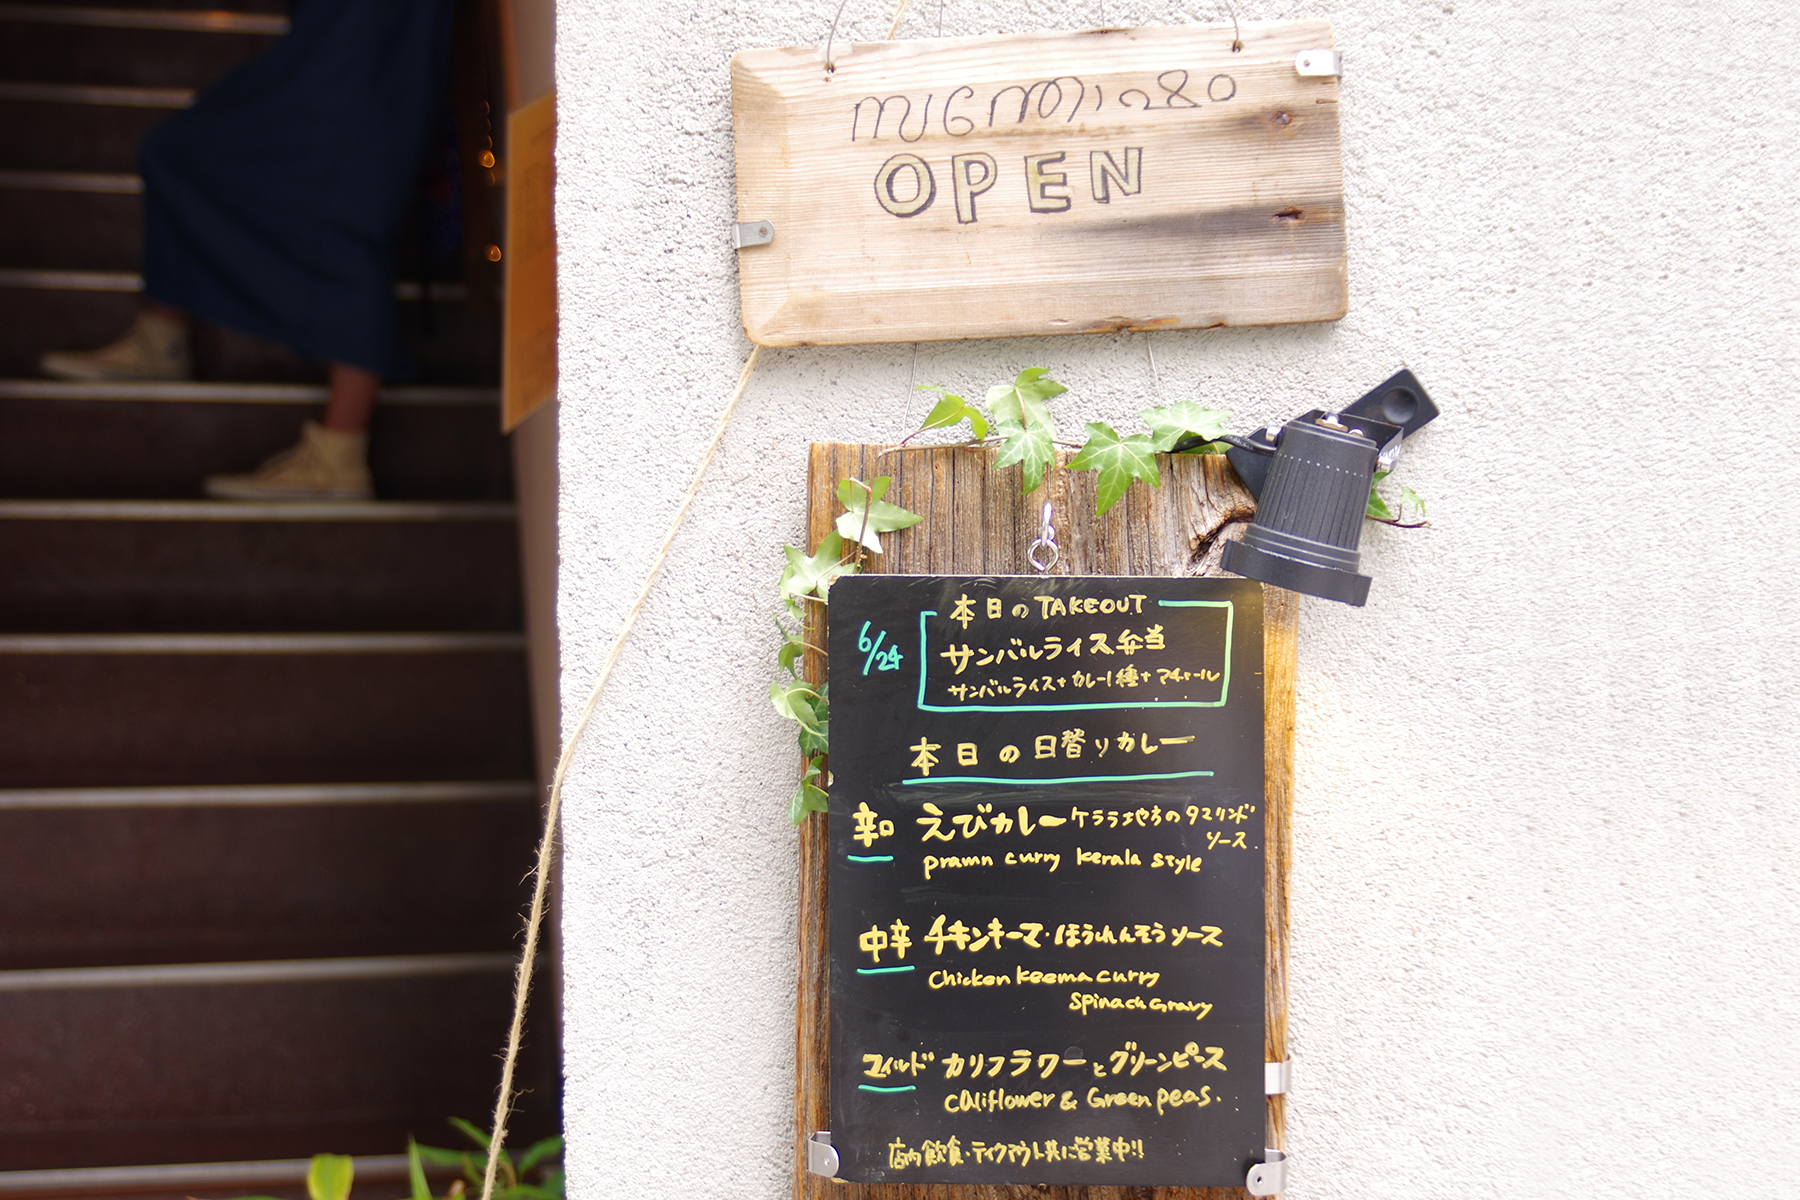 OPEN
6/24
本日のTAKEOUT
サンバルライス弁当
サンバルライス+カレー1種+アチャール
本日の日替りカレー
辛口 えびカレー ケララ地方のタマリンド
ソース
prawn curry kerala style
中辛 チキンキーマ・ほうれんそうソース
Chicken keema curry
Spinach Gravy
マイルド カリフラワーとグリーンピース
Califlower & Green peas.
店内飲食・テイクアウト共に営業中!!